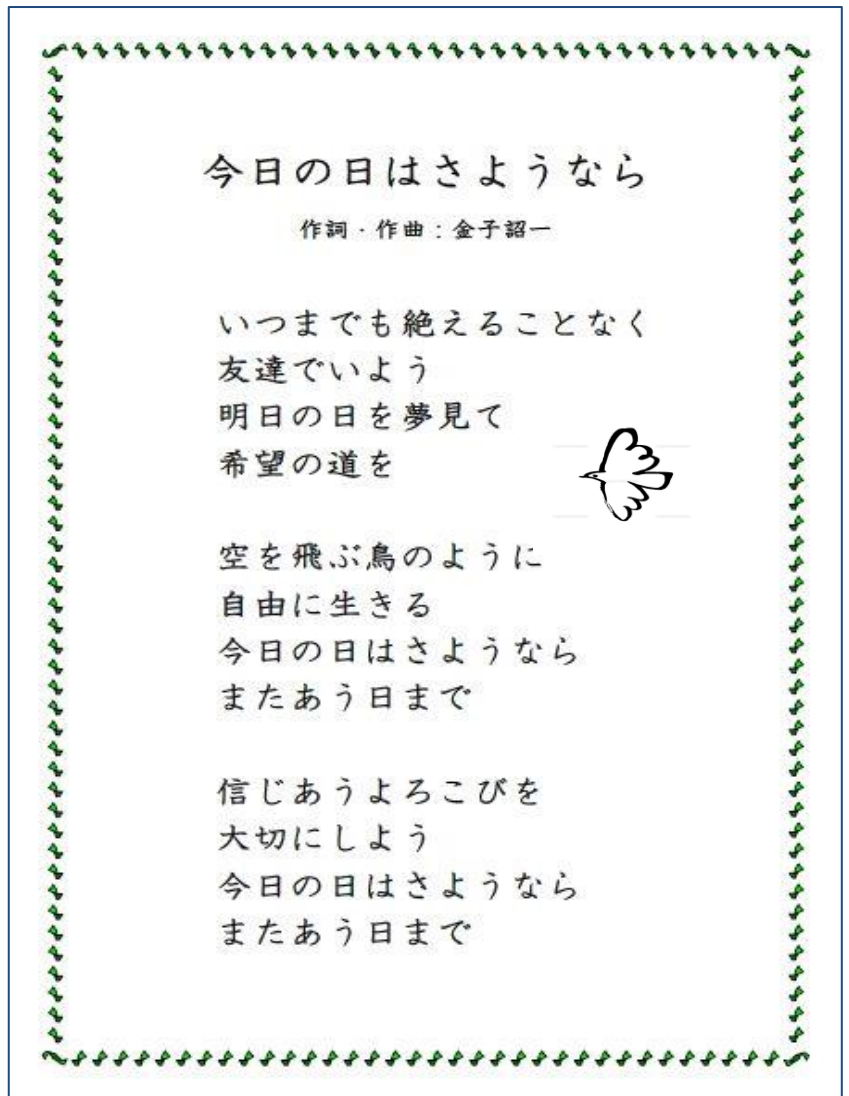 今日の日はさようなら
作詞・作曲：金子詔一
いつまでも絶えることなく
友達でいよう
明日の日を夢見て
希望の道を
空を飛ぶ鳥のように
自由に生きる
今日の日はさようなら
またあう日まで
信じあうよろこびを
大切にしよう
今日の日はさようなら
またあう日まで